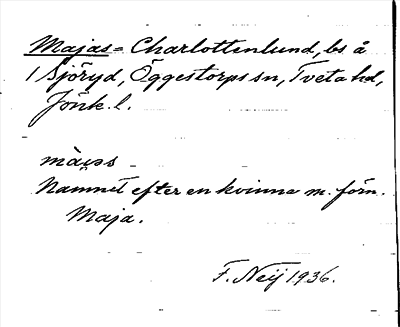 Majas = Charlottenlund, bs å
1 Sjöryd, Öggestorps sn, Tveta hd,
Jönk. l.
Namnet efter en kvinna m. förn.
Maja.
F. Neij 1936.